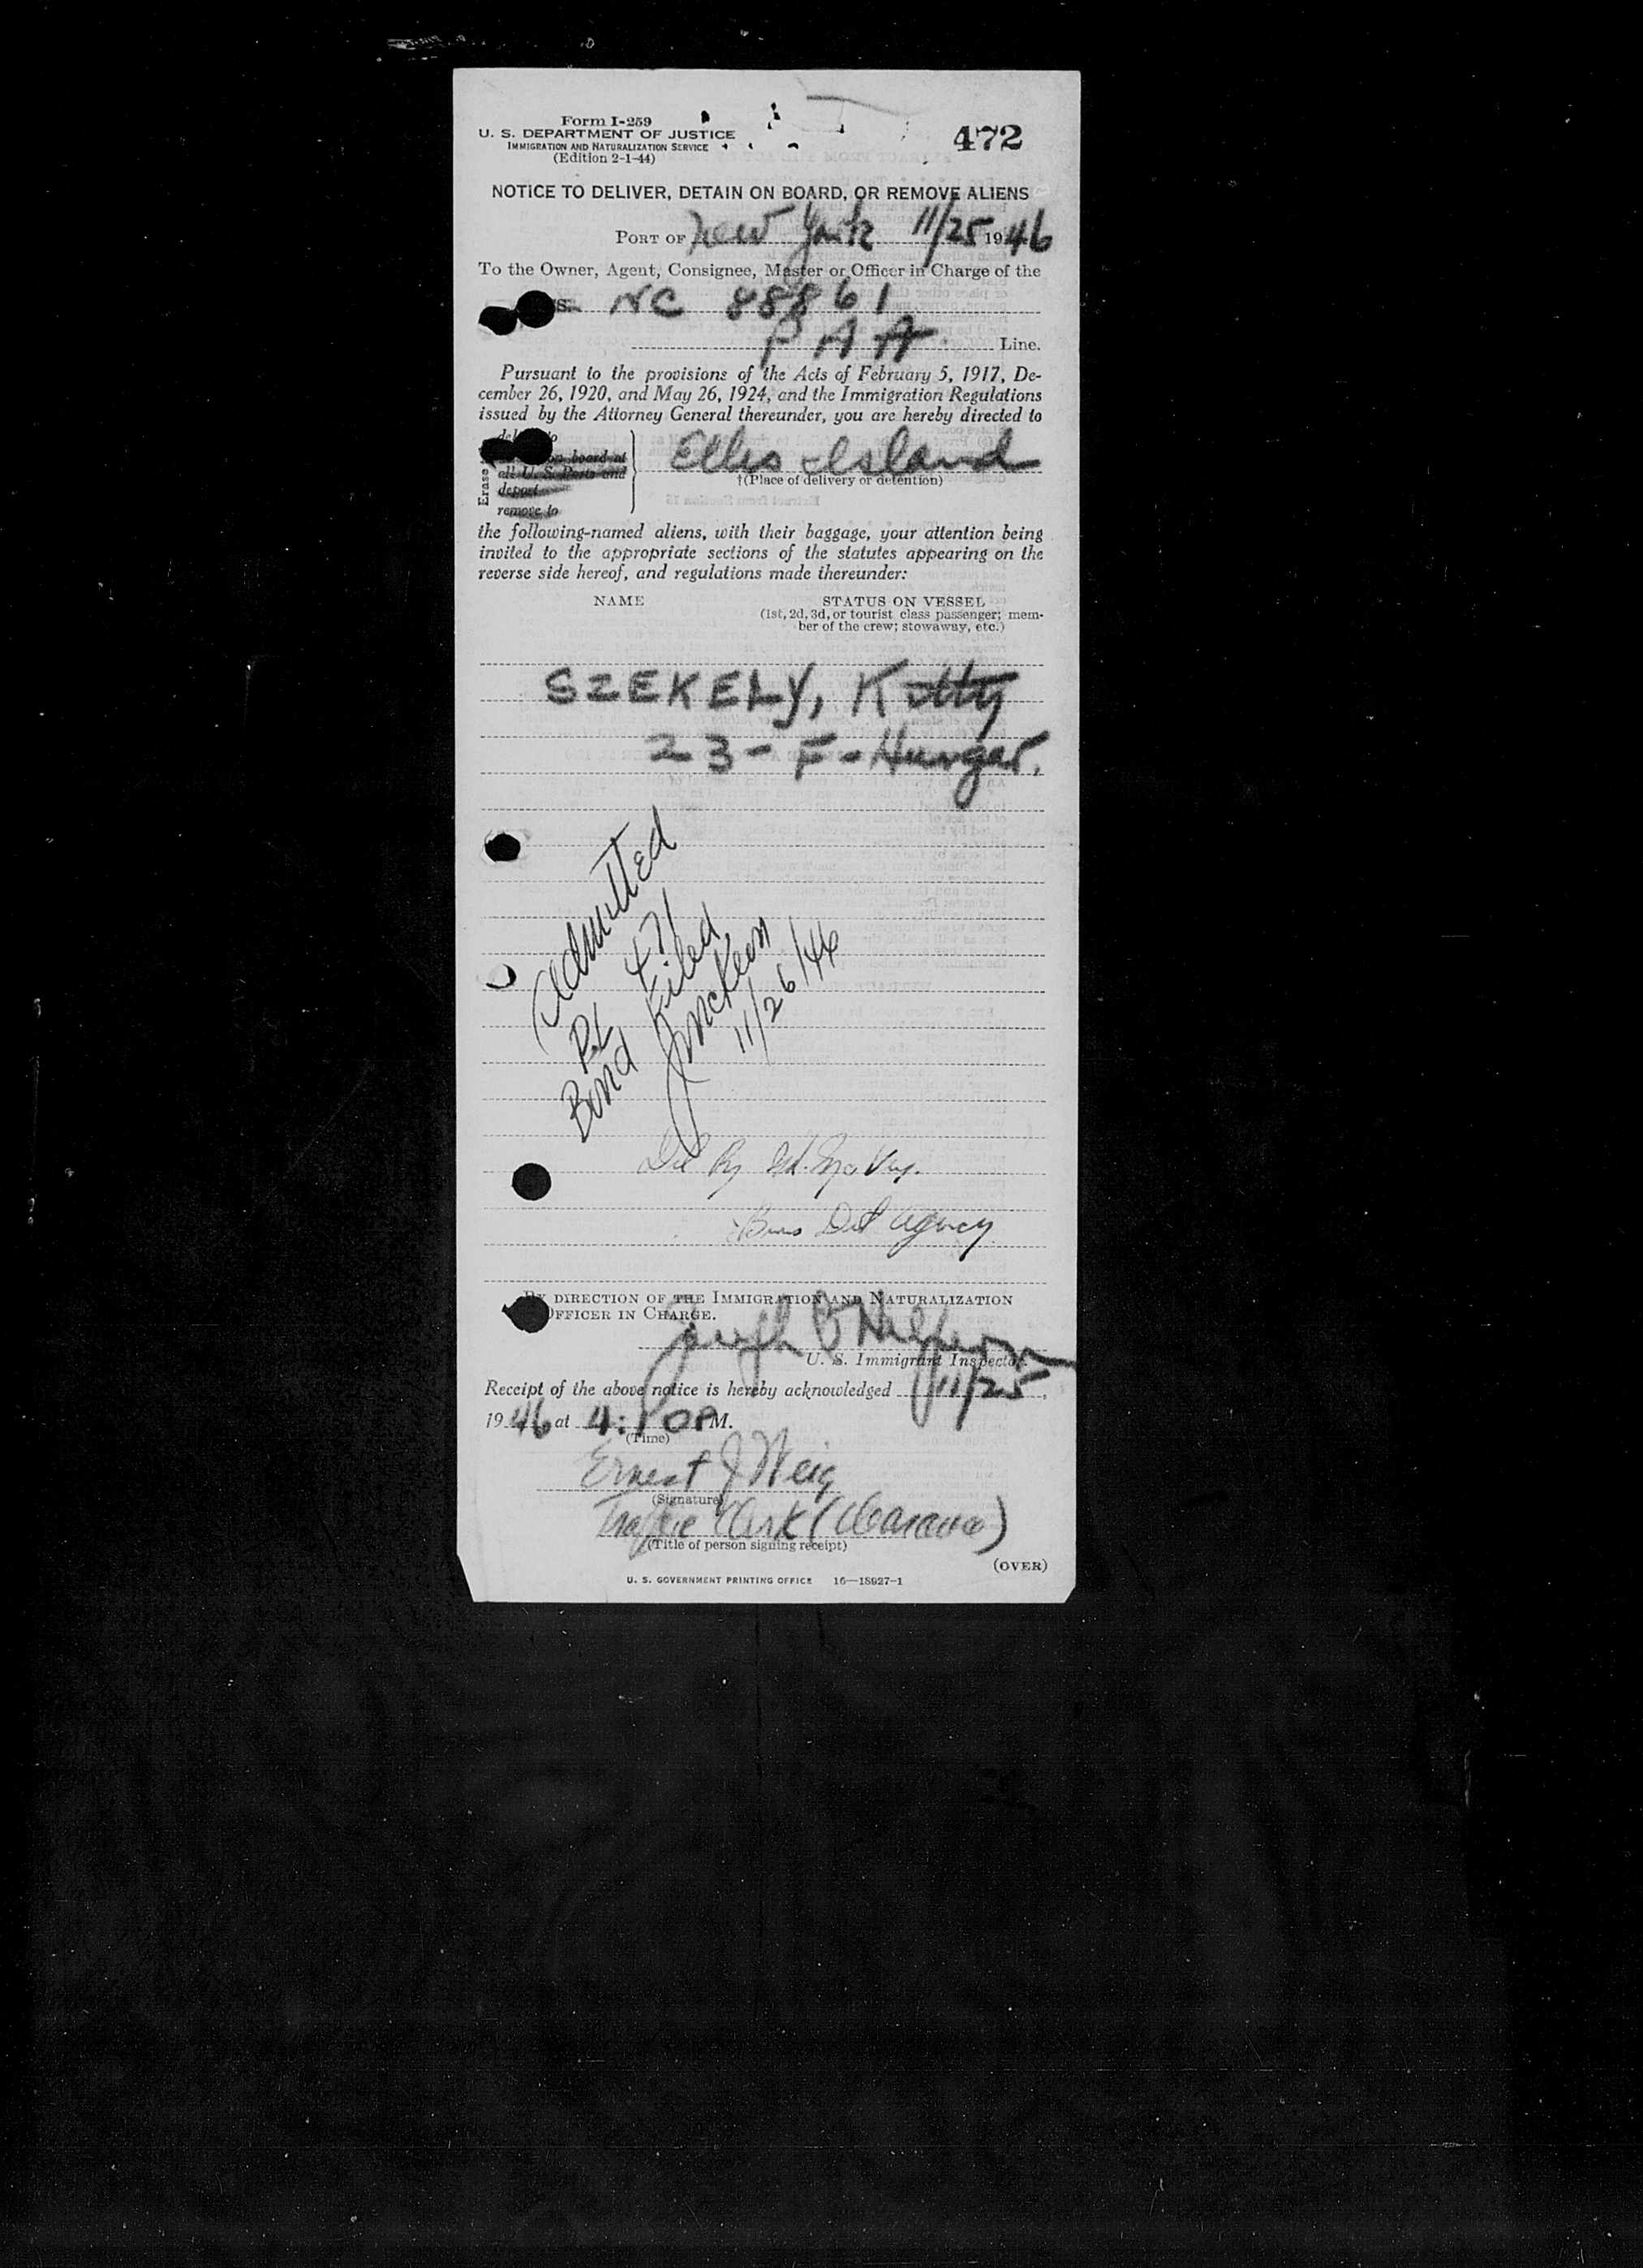 Form I-259
U. S. DEPARTMENT OF JUSTICE
IMMIGRATION AND NATURALIZATION SERVICE
(Edition 2-1-44)
472
NOTICE TO DELIVER, DETAIN ON BOARD, OR REMOVE ALIENS
PORT OF New York 11/25 1946
To the Owner, Agent, Consignee, Master or Officer in Charge of the
NC 88861
PAA Line.
Pursuant to the provisions of the Acts of February 5, 1917, De-
cember 26, 1920, and May 26, 1924, and the Immigration Regulations
issued by the Attorney General thereunder, you are hereby directed to
Erase
on board at
all U. S. Ports and
deport
remove to
Ellis Island
†(Place of delivery or detention)
the following-named aliens, with their baggage, your attention being
invited to the appropriate sections of the statutes appearing on the
reverse side hereof, and regulations made thereunder:
NAME
STATUS ON VESSEL
(1st, 2d, 3d, or tourist class passenger; mem-
ber of the crew; stowaway, etc.)
SZEKELY, Kitty
23 - F - Hungar.
Admitted
P.L. 471
Bond Filed
JMcKeon
11/26/46
Del By
Det Agency
BY DIRECTION OF THE IMMIGRATION AND NATURALIZATION
OFFICER IN CHARGE.
Joseph
U. S. Immigrant Inspector
Receipt of the above notice is hereby acknowledged 11/25,
1946 at 4:10 PM.
(Time)
Ernest J
(Signature)
Traffic Clerk
(Title of person signing receipt)
(OVER)
U. S. GOVERNMENT PRINTING OFFICE 16—18927-1